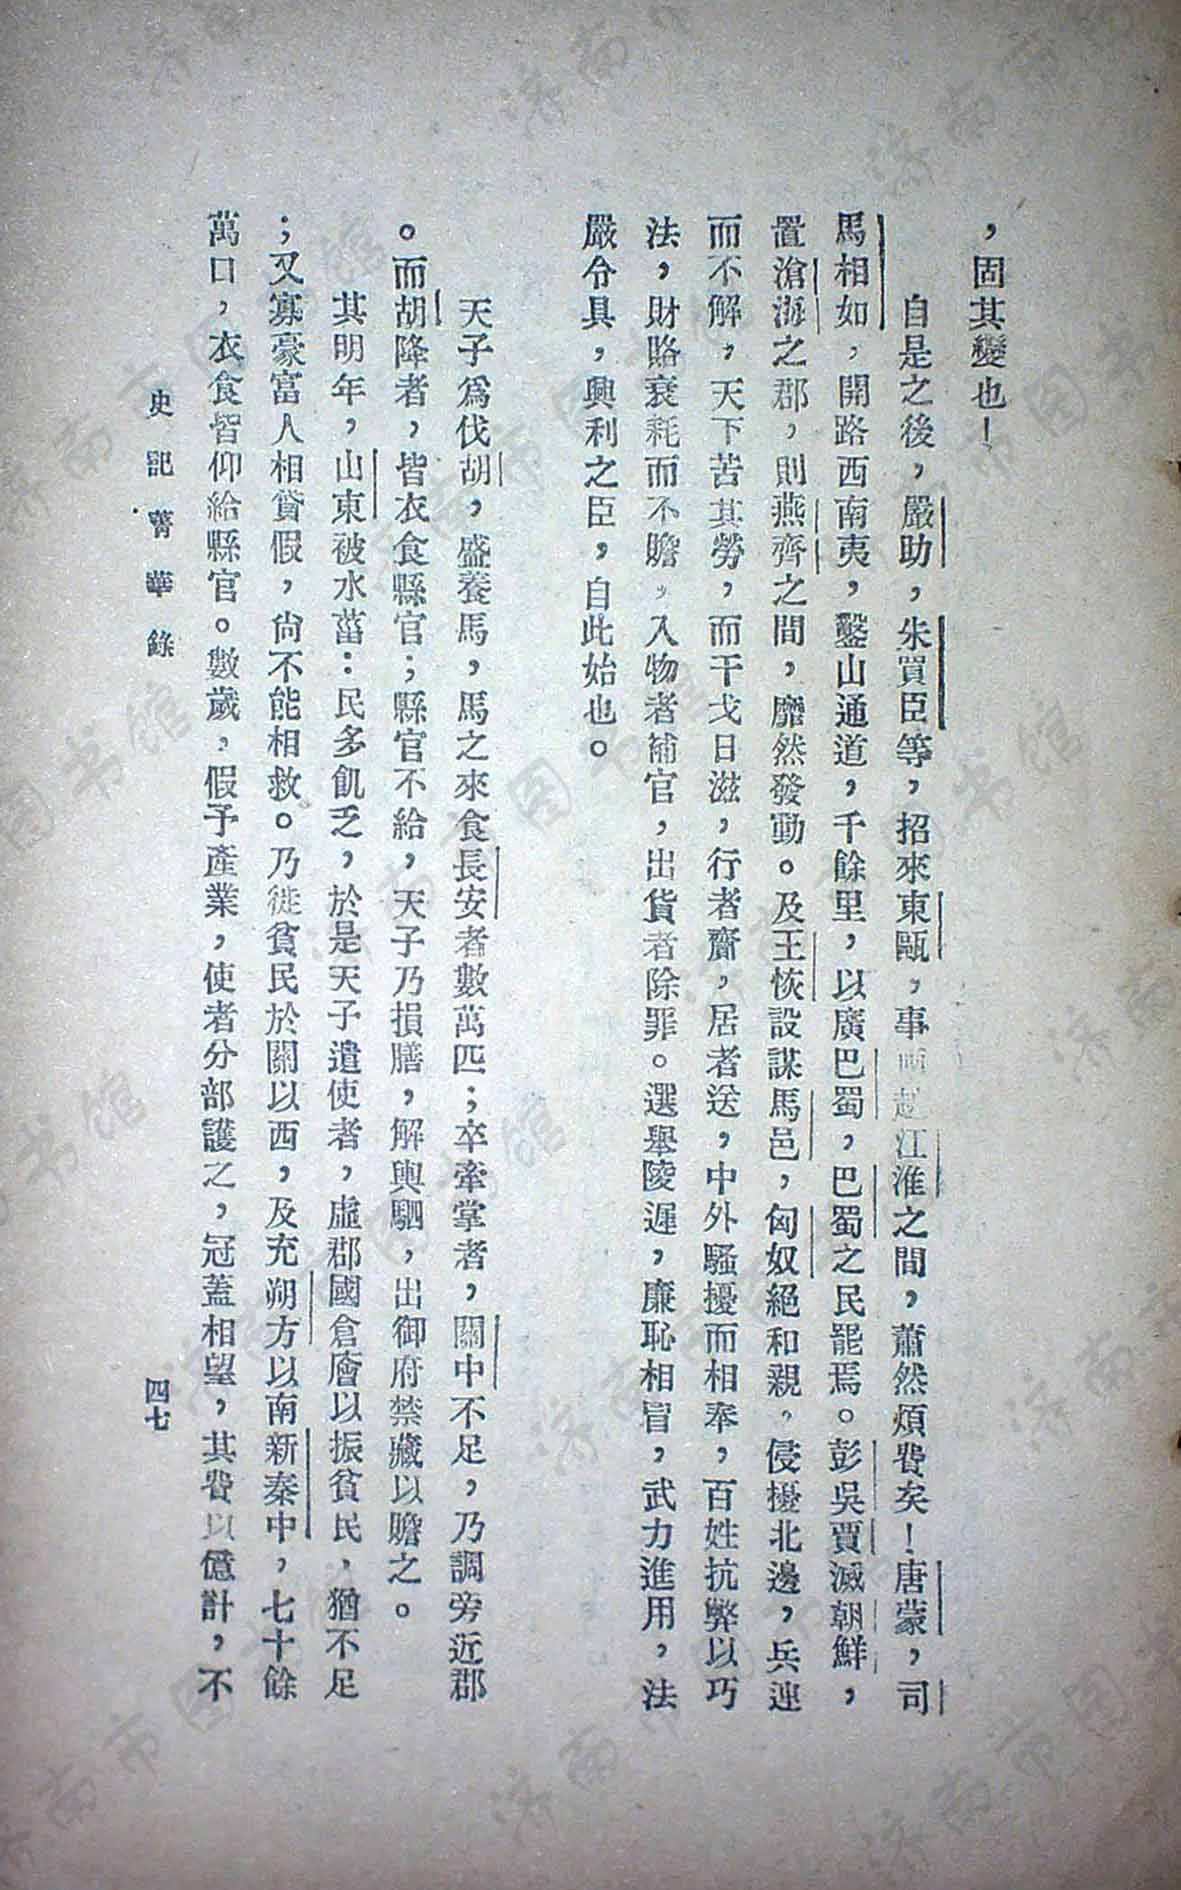 ，固其變也！
自是之後，嚴助，朱買臣等，招來東甌，事兩越江淮之間，蕭然煩費矣！唐蒙，司
馬相如，開路西南夷，鑿山通道，千餘里，以廣巴蜀，巴蜀之民罷焉。彭吳賈滅朝鮮，
置滄海之郡，則燕齊之間，靡然發動。及王恢設謀馬邑，匈奴絕和親，侵擾北邊，兵連
而不解，天下苦其勞，而干戈日滋，行者齎，居者送，中外騷擾而相奉，百姓抗弊以巧
法，財賂衰耗而不贍，入物者補官，出貨者除罪。選舉陵遲，廉恥相冒，武力進用，法
嚴令具，興利之臣，自此始也。
天子爲伐胡，盛養馬，馬之來食長安者數萬匹；卒牽掌者，關中不足，乃調旁近郡
。而胡降者，皆衣食縣官；縣官不給，天子乃損膳，解輿駟，出御府禁藏以贍之。
其明年，山東被水菑：民多飢乏，於是天子遣使者，虛郡國倉廥以振貧民，猶不足
；又寡豪富人相貸假，尙不能相救。乃徙貧民於關以西，及充朔方以南新秦中，七十餘
萬口，衣食皆仰給縣官。數歲，假予產業，使者分部護之，冠蓋相望，其費以億計，不
史記菁華錄
四七
济南市图书馆